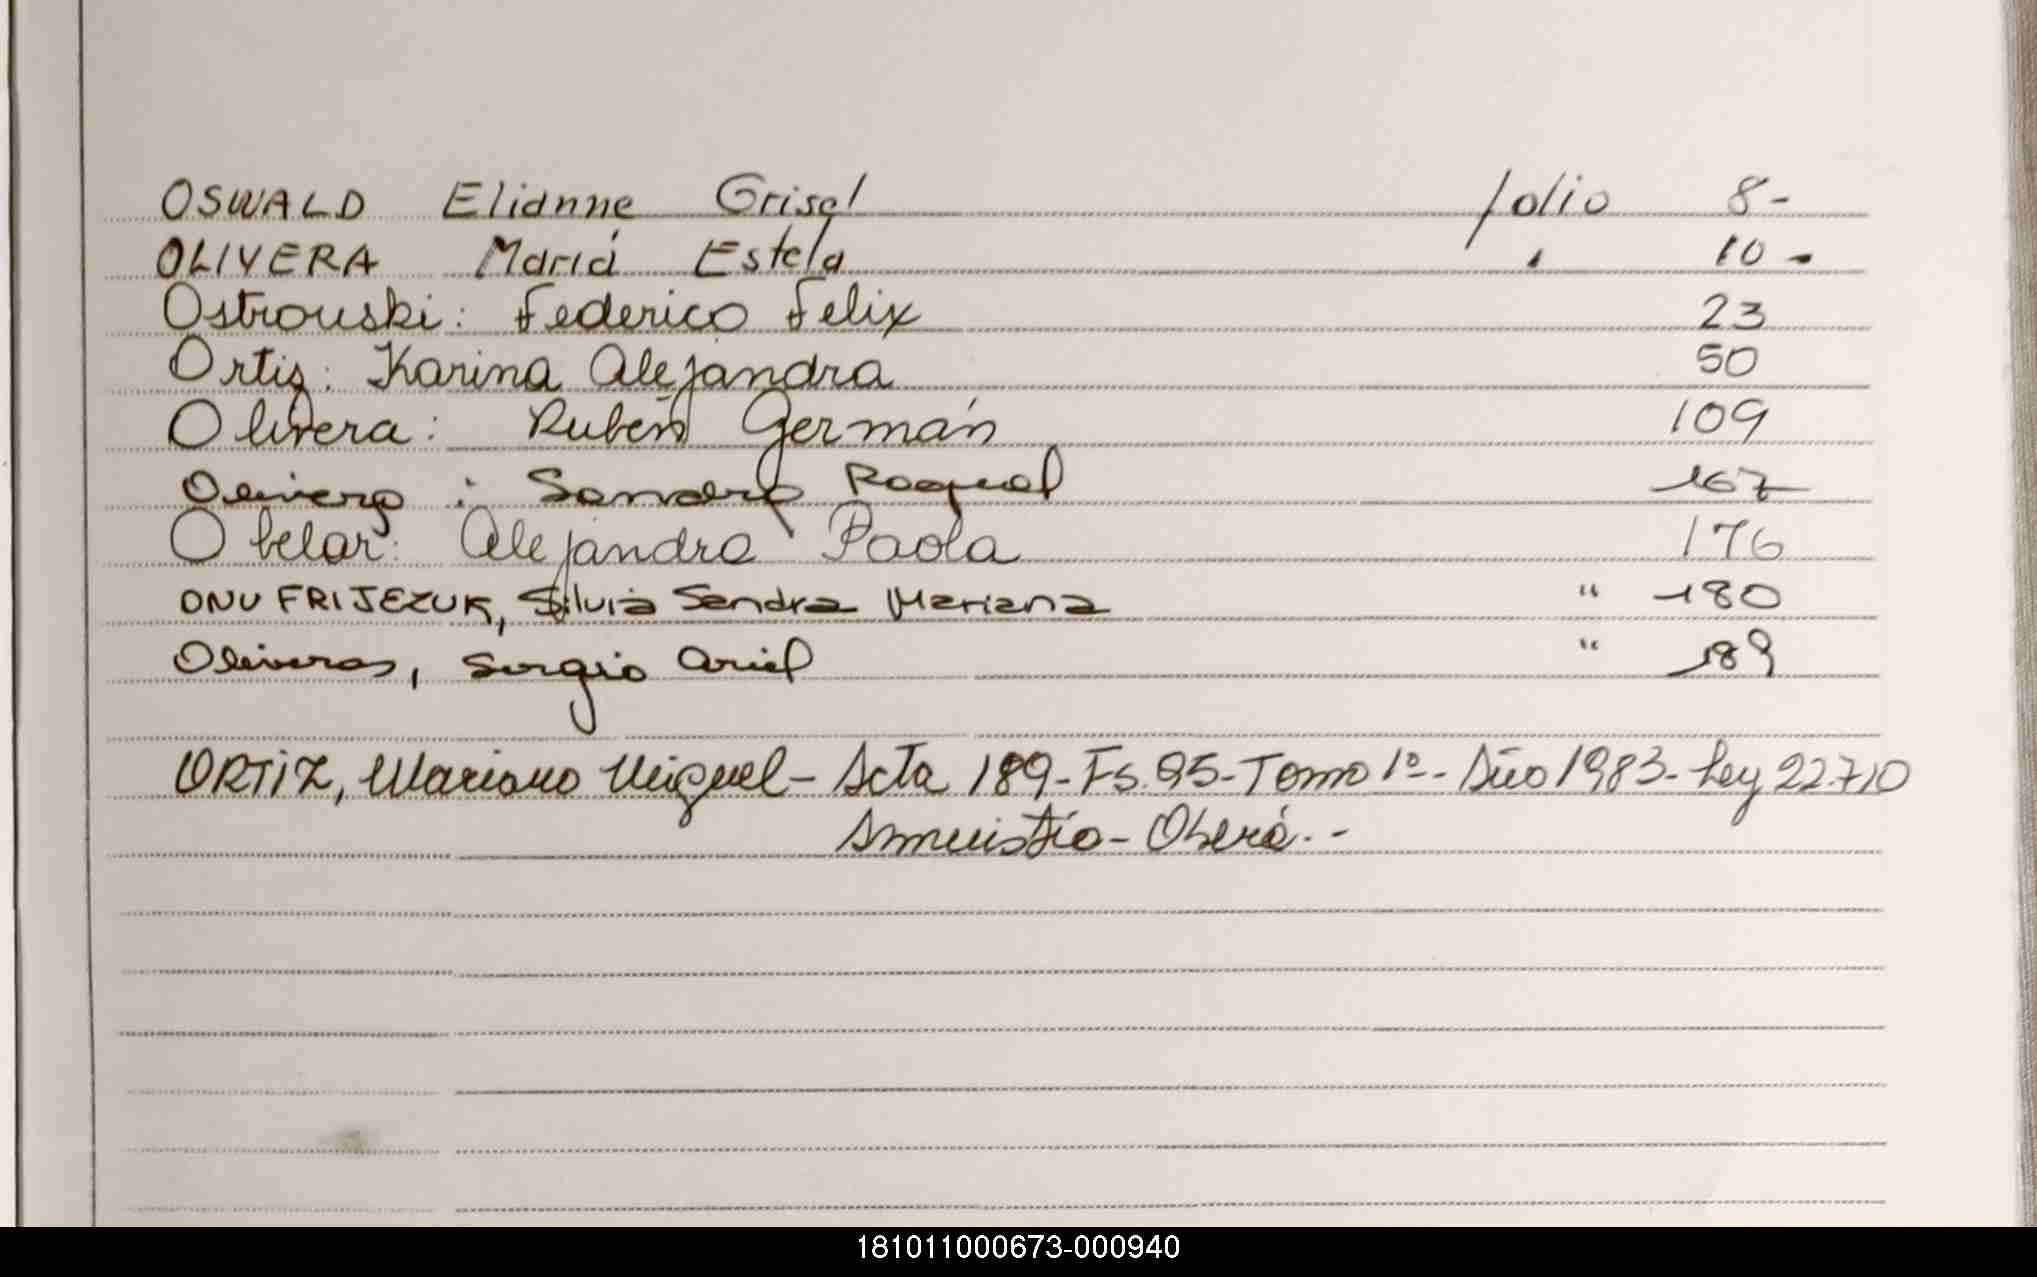 OSWALD Elianne Grisel folio 8-
OLIVERA María Estela " 10-
Ostrouski: Federico Felix 23
Ortiz: Karina Alejandra 50
Olivera: Rubén Germán 109
Olivera: Sandra Raquel 167
Obelar: Alejandra Paola 176
ONUFRIJEZUK, Silvia Sandra Mariana " 180
Oliveras, Sergio Ariel " 189
ORTIZ, Mariano Miguel - Acta 189 - Fs. 95 - Tomo 1º - Año 1983 - Ley 22.710
Amnistía - Oberá.-
181011000673-000940